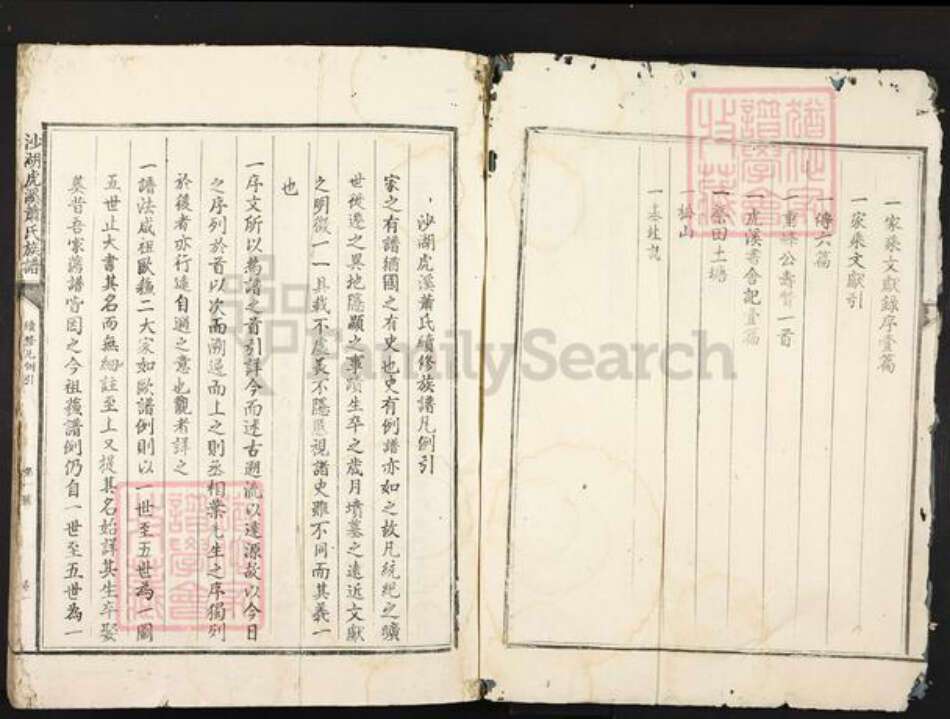 一家乘文獻錄序壹篇
一家乘文獻引
一傳六篇
一重峰公壽誓一首
一虎溪書舍記壹篇
一祭田土塘
一梅山
一基址說
沙湖虎溪蕭氏續修族譜凡例引
家之有譜猶國之有史也史有例譜亦如之故凡統紀之曠
世從遷之異地隱顯之事蹟生卒之歲月墳墓之遠近文獻
之明徵一一具載不虛美不隱惡視諸史雖不同而其義一
也
一序文所以為譜之首引詳今而述古遡流以達源故以今日
之序列於首以次而溯遡而上之則丞相葉先生之序獨列
於後者亦行遠自邇之意也觀者詳之
一譜法咸祖歐蘇二大家如歐譜例則以一世至五世為一圖
五世止大書其名而無細註至上又提其名始詳其生卒娶
葵昔吾家舊譜皆因之今祖蘇譜例仍自一世至五世為一
沙湖虎溪蕭氏族譜
續修凡例引
FamilySearch